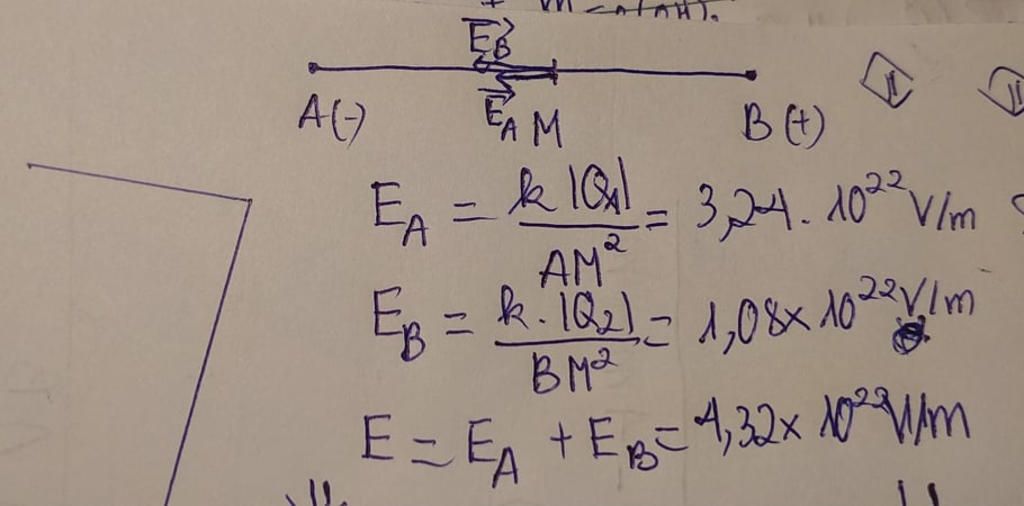 E⃗B
E⃗A
A(-) M B(+)
E_A = k|Q₁| / AM² = 3,24 . 10²² V/m
E_B = k.|Q₂| / BM² = 1,08 x 10²² V/m
E = E_A + E_B = 4,32 x 10²² V/m